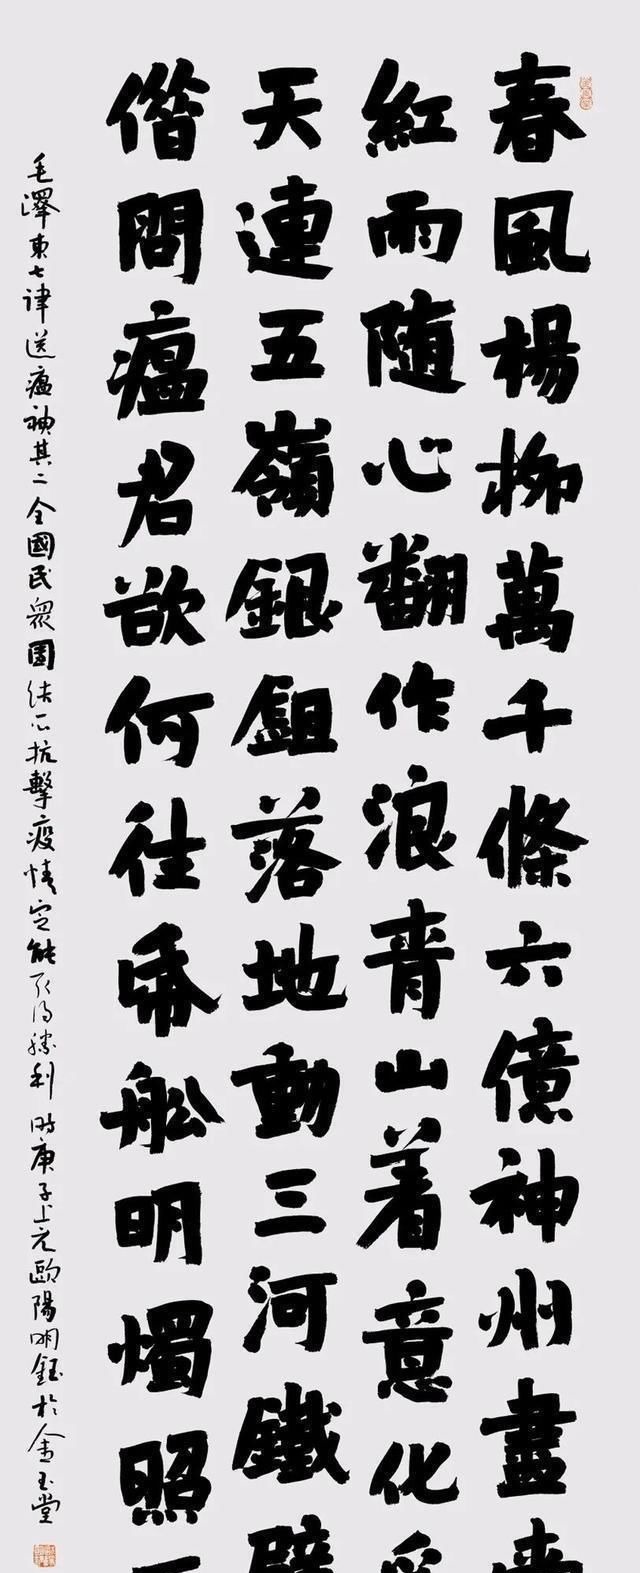 春風楊柳萬千條六億神州盡
紅雨随心翻作浪青山着意化
天連五嶺銀鉏落地動三河鐵臂
借問瘟君欲何往帋船明燭照
毛澤東七律送瘟神其二全國民衆團结心抗擊疫情定能取得勝利時庚子上元歐陽明鈺於金玉堂